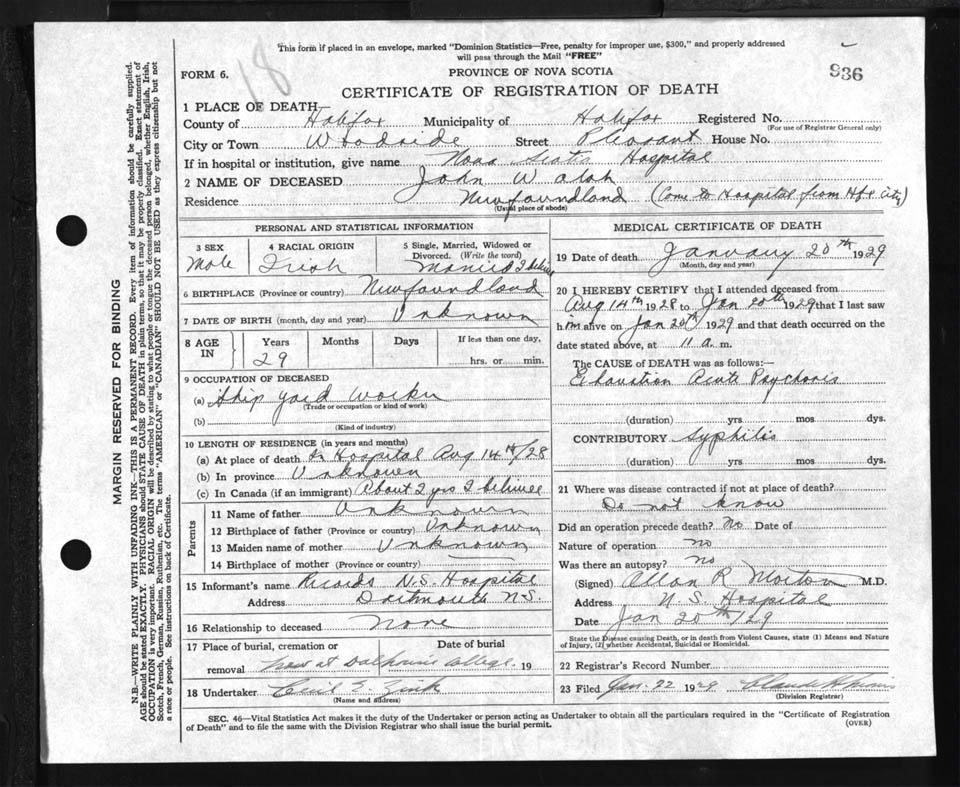 This form if placed in an envelope, marked "Dominion Statistics—Free, penalty for improper use, $300," and properly addressed
will pass through the Mail "FREE"
18
936
FORM 6.
PROVINCE OF NOVA SCOTIA
CERTIFICATE OF REGISTRATION OF DEATH
1 PLACE OF DEATH—
County of Halifax Municipality of Halifax Registered No.
(For use of Registrar General only)
City or Town Woodside Street Pleasant House No.
If in hospital or institution, give name Nova Scotia Hospital
2 NAME OF DECEASED John Walsh
Residence Newfoundland (Come to Hospital from Hfx City)
(Usual place of abode)
PERSONAL AND STATISTICAL INFORMATION
3 SEX Male
4 RACIAL ORIGIN Irish
5 Single, Married, Widowed or Divorced. (Write the word) Married I believe
6 BIRTHPLACE (Province or country) Newfoundland
7 DATE OF BIRTH (month, day and year) Unknown
8 AGE IN Years Months Days If less than one day,
29 hrs. or min.
9 OCCUPATION OF DECEASED
(a) Ship yard worker
(Trade or occupation or kind of work)
(b)
(Kind of industry)
10 LENGTH OF RESIDENCE (in years and months)
(a) At place of death In Hospital Aug 14th/28
(b) In province Unknown
(c) In Canada (if an immigrant) About 2 yrs I believe
Parents
11 Name of father Unknown
12 Birthplace of father (Province or country) Unknown
13 Maiden name of mother Unknown
14 Birthplace of mother (Province or country)
15 Informant's name Records N.S. Hospital
Address Dartmouth N.S.
16 Relationship to deceased None
17 Place of burial, cremation or Date of burial
removal at Dalhousie College 19
18 Undertaker Cecil E. Zink
(Name and address)
MEDICAL CERTIFICATE OF DEATH
19 Date of death January 20th 1929
(Month, day and year)
20 I HEREBY CERTIFY that I attended deceased from
Aug 14th 1928 to Jan 20th 1929 that I last saw
him alive on Jan 20th 1929 and that death occurred on the
date stated above, at 11 a. m.
The CAUSE OF DEATH was as follows:—
Exhaustion Acute Psychosis
(duration) yrs mos dys.
CONTRIBUTORY Syphilis
(duration) yrs mos dys.
21 Where was disease contracted if not at place of death?
Do not know
Did an operation precede death? No Date of
Nature of operation no
Was there an autopsy? no
(Signed) Allan R Morton M.D.
Address N.S. Hospital
Date Jan 20th/29
State the Disease causing Death, or in death from Violent Causes, state (1) Means and Nature
of Injury, (2) whether Accidental, Suicidal or Homicidal.
22 Registrar's Record Number
23 Filed Jan. 22 1929
(Division Registrar)
SEC. 46—Vital Statistics Act makes it the duty of the Undertaker or person acting as Undertaker to obtain all the particulars required in the "Certificate of Registration
of Death" and to file the same with the Division Registrar who shall issue the burial permit.
(OVER)
MARGIN RESERVED FOR BINDING
N.B.—WRITE PLAINLY WITH UNFADING INK—THIS IS A PERMANENT RECORD. Every item of information should be carefully supplied.
AGE should be stated EXACTLY. PHYSICIANS should STATE CAUSE OF DEATH in plain terms, so that it may be properly classified. Exact statement of
OCCUPATION is very important. RACIAL ORIGIN will be described by stating to what people or tongue the deceased person belonged, whether English, Irish,
Scotch, French, German, Russian, Ruthenian, etc. The terms "AMERICAN" or "CANADIAN" SHOULD NOT BE USED as they express citizenship but not
a race or people. See instructions on back of Certificate.